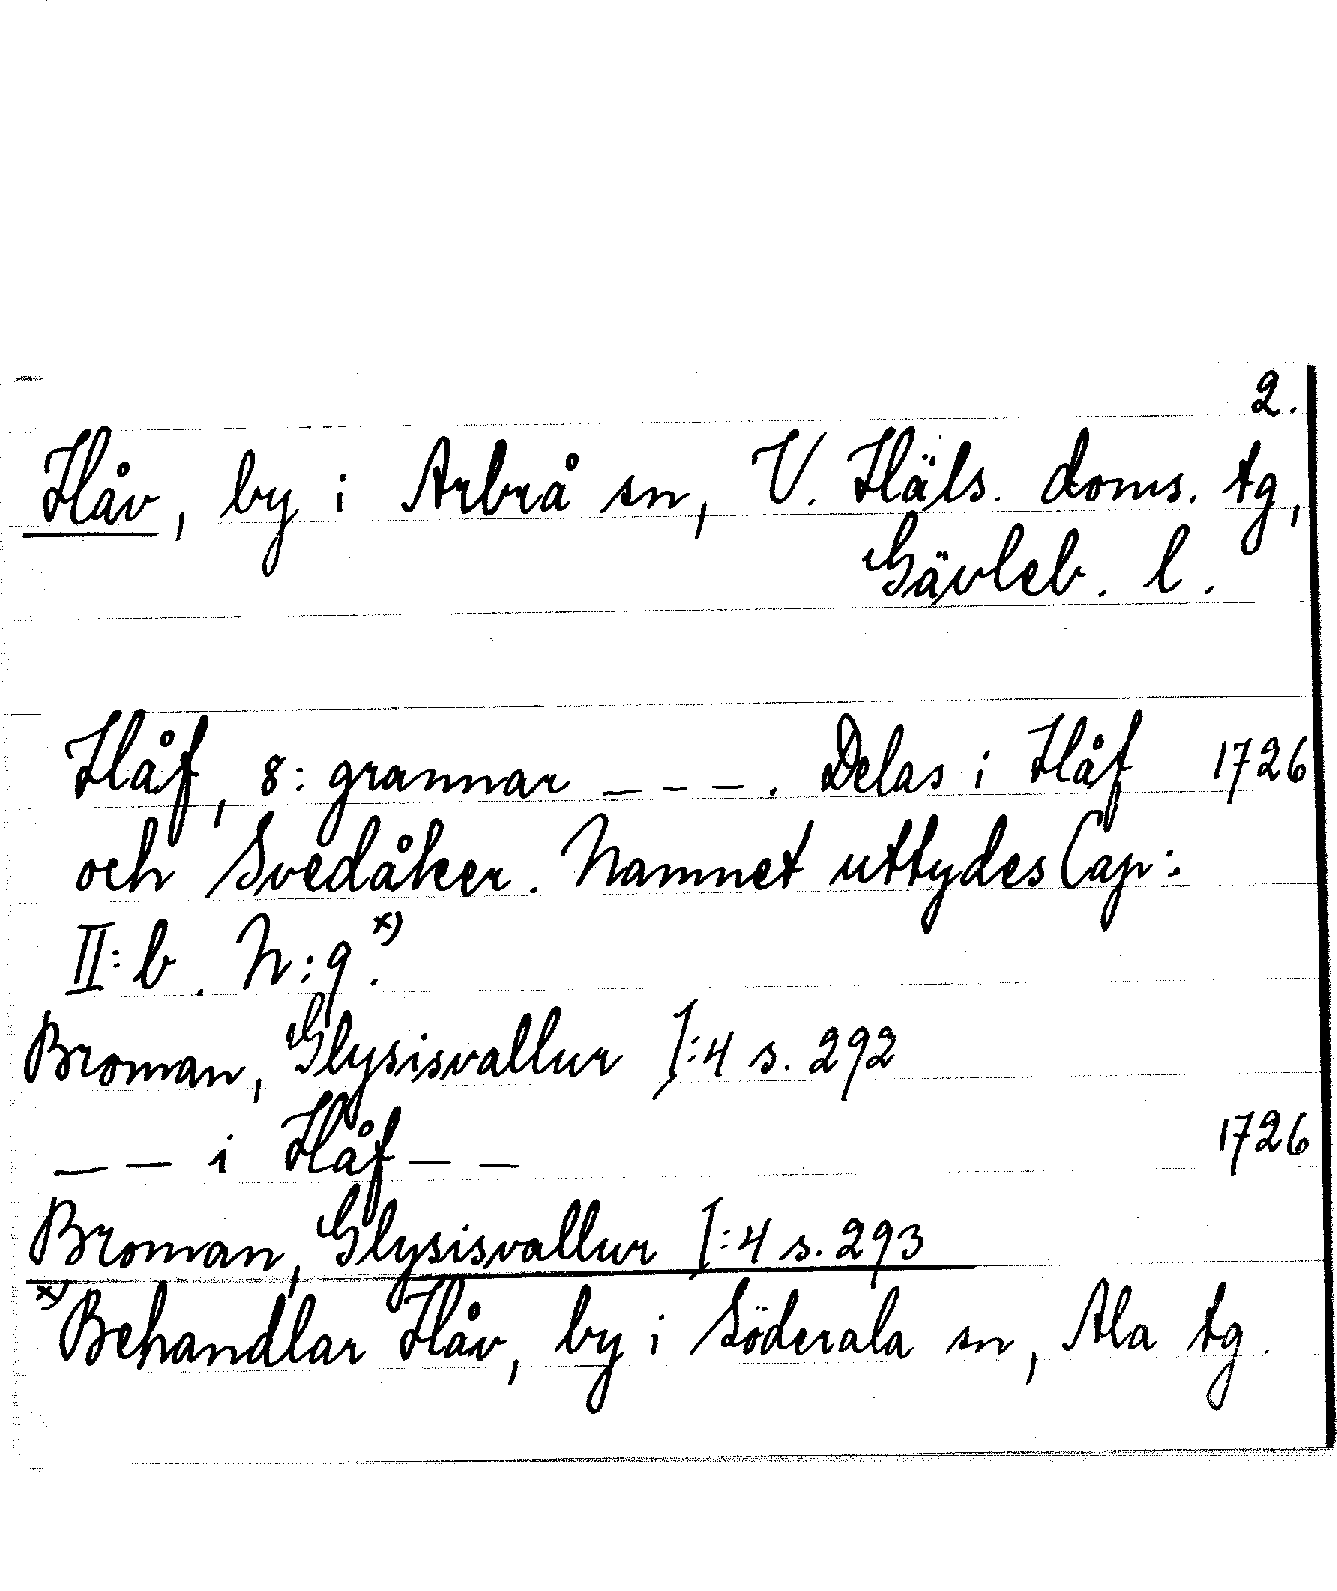 2.
Håv, by i Arbrå sn, V. Häls. doms. tg,
Gävleb. l.
Håf, 8: grannar _ _ _ _. Delas i Håf 1726
och Svedåker. Namnet uttydes Cap:
II: b. N: 9.x)
Broman, Glysisvallur I:4 s. 292
_ _ i Håf _ _ 1726
Broman, Glysisvallur I:4 s. 293
x) Behandlar Håv, by i Söderala sn, Ala tg.